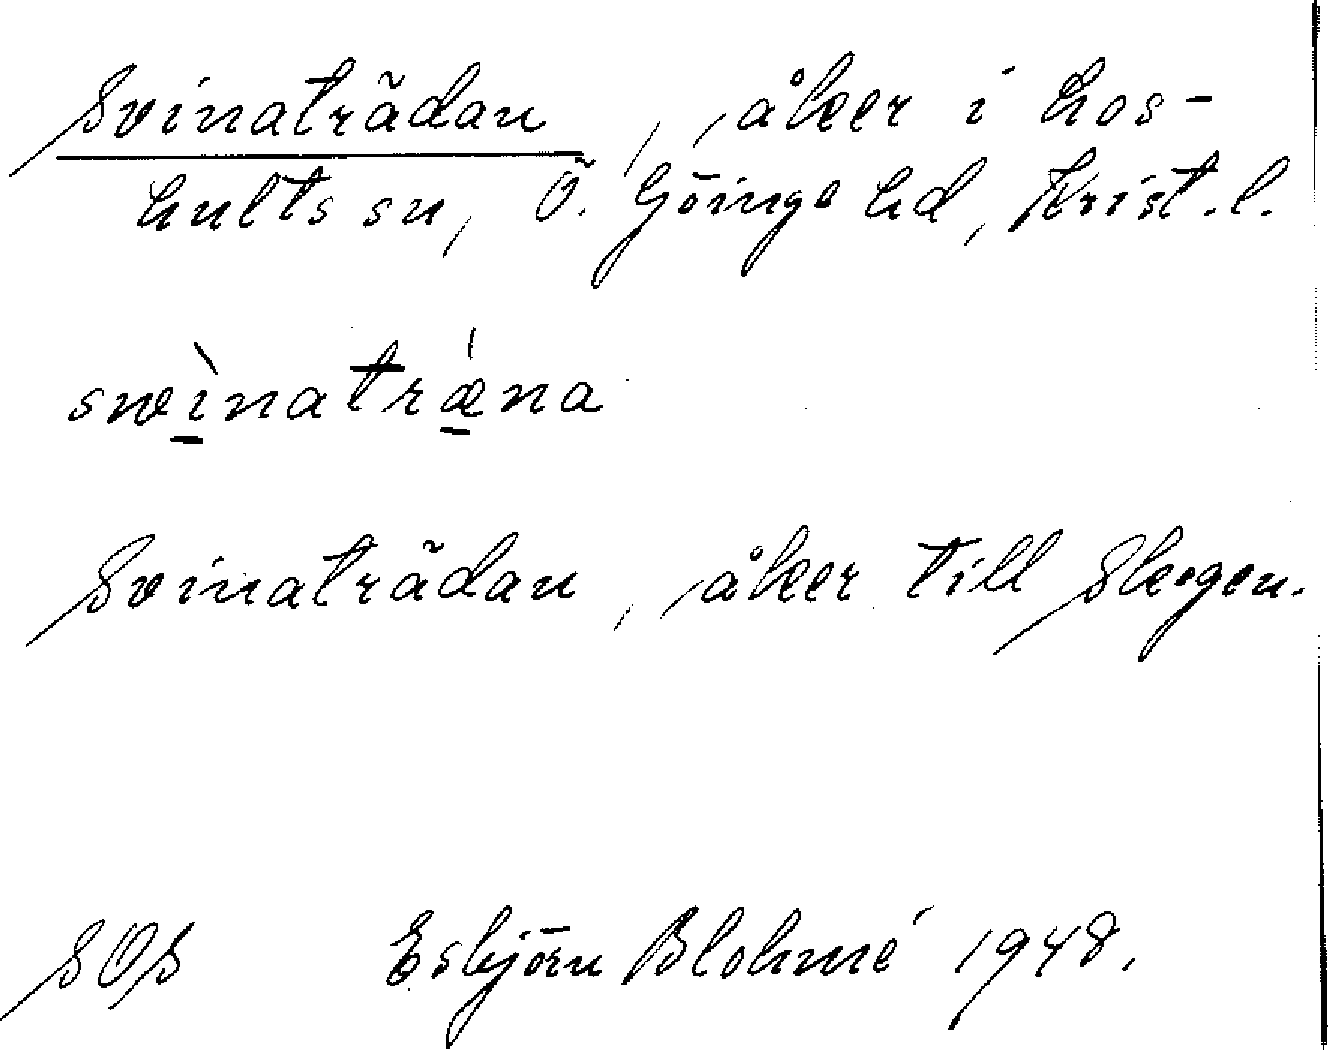 Svinaträdan, åker i Los-
hults sn, Ö. Göinge hd, Krist. l.
swìnatrǽna
Svinaträdan, åker till Skogen.
SOS Esbjörn Blohmé 1948.